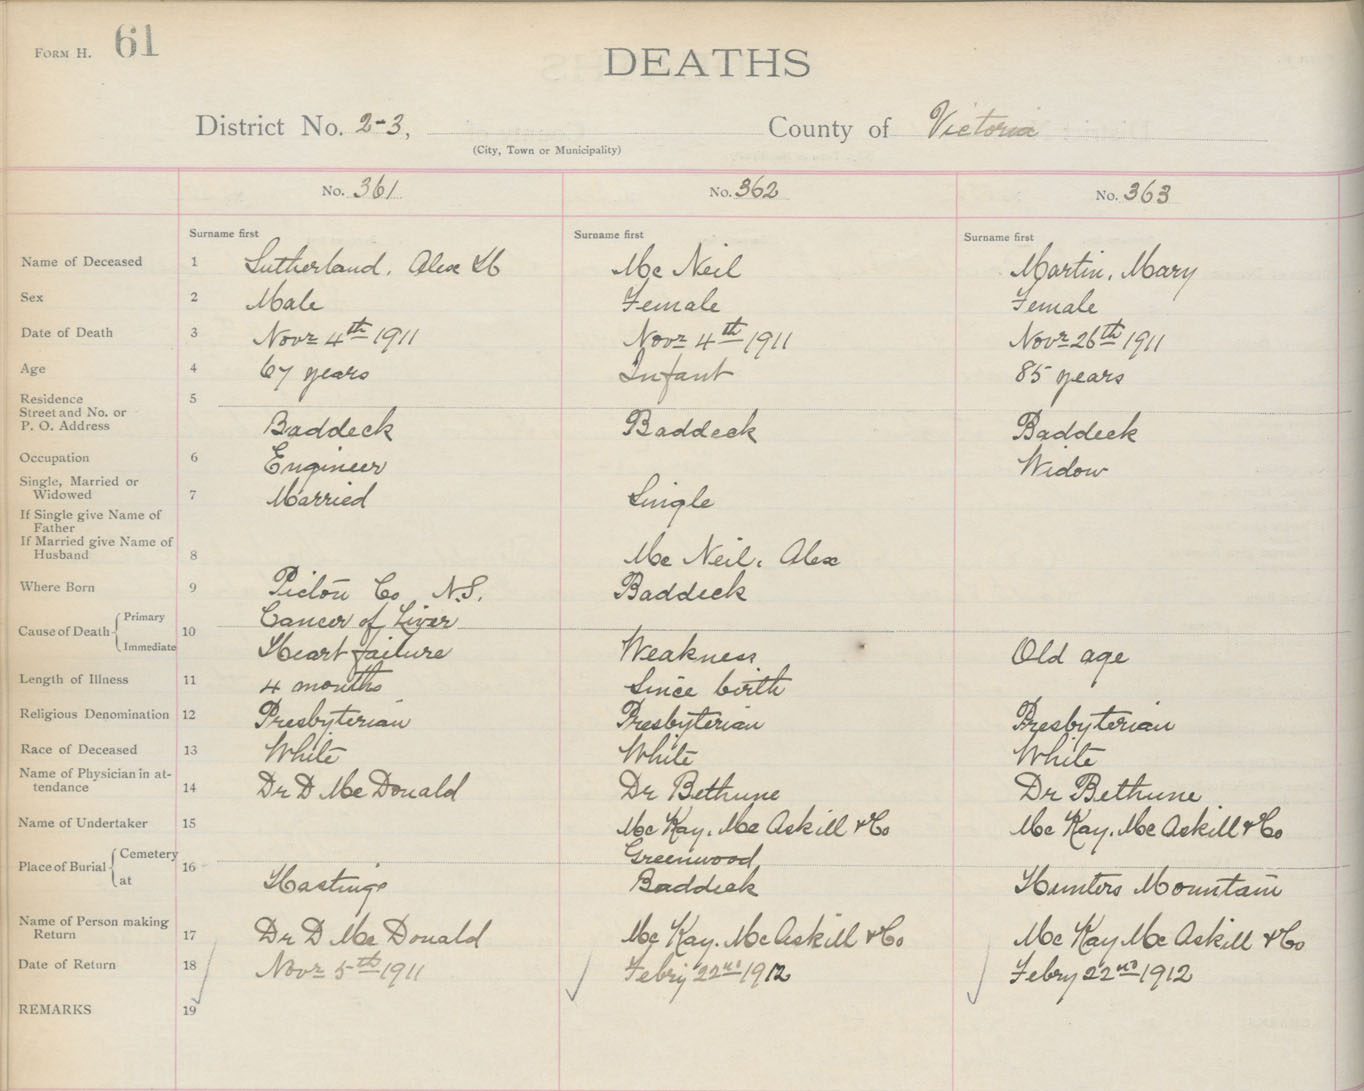 FORM H. 61
DEATHS
District No. 2-3, County of Victoria
(City, Town or Municipality)
No. 361 No. 362 No. 363
Surname first Surname first Surname first
Name of Deceased 1 Sutherland, Alex Mc Neil Martin, Mary
Sex 2 Male Female Female
Date of Death 3 Novr 4th 1911 Novr 4th 1911 Novr 26th 1911
Age 4 67 years Infant 85 years
Residence 5
Street and No. or
P. O. Address Baddeck Baddeck Baddeck
Occupation 6 Engineer Widow
Single, Married or
Widowed 7 Married Single
If Single give Name of
Father
If Married give Name of
Husband 8 Mc Neil, Alex
Where Born 9 Pictou Co N.S. Baddeck
Cause of Death Primary 10 Cancer of Liver
Immediate Heart failure Weakness Old age
Length of Illness 11 4 months Since birth
Religious Denomination 12 Presbyterian Presbyterian Presbyterian
Race of Deceased 13 White White White
Name of Physician in at-
tendance 14 Dr D McDonald Dr Bethune Dr Bethune
Name of Undertaker 15 McKay, McAskill & Co McKay, McAskill & Co
Place of Burial Cemetery 16 Greenwood
at Hastings Baddeck Hunters Mountain
Name of Person making
Return 17 Dr D McDonald McKay, McAskill & Co McKay McAskill & Co
Date of Return 18 Novr 5th 1911 Febry 22nd 1912 Febry 22nd 1912
REMARKS 19